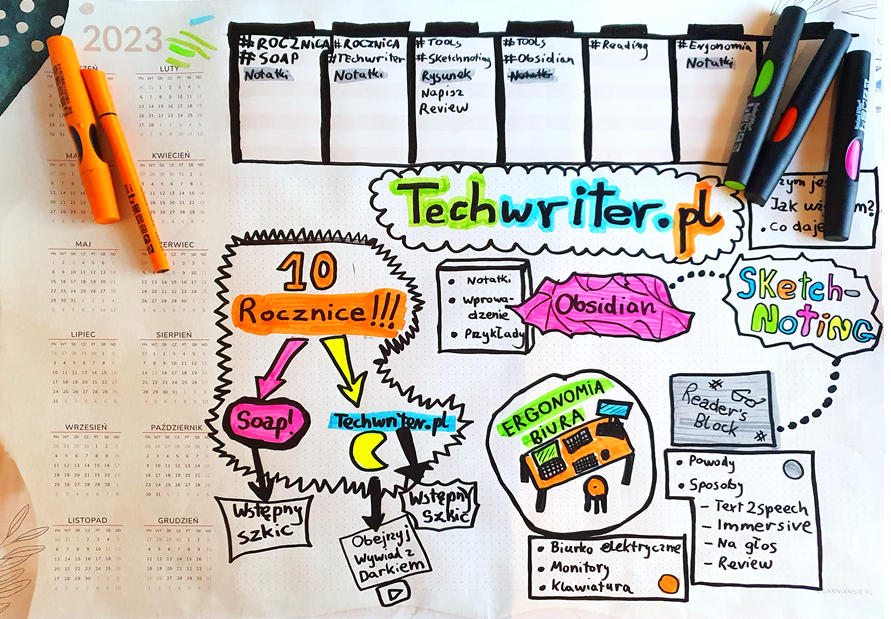 2023
LUTY
KWIECIEŃ
MAJ
LIPIEC
SIERPIEŃ
WRZESIEŃ
PAŹDZIERNIK
LISTOPAD
GRUDZIEŃ
#ROCZNICA
#SOAP
Notatki
#ROCZNICA
#Techwriter
Notatki
#TOOLS
#Sketchnoting
Rysunek
Napisz
Review
#TOOLS
#Obsidian
Notatki
#Reading
#Ergonomia
Notatki
Techwriter.pl
Jak
• Co daje
10
Rocznice!!!
Soap!
Techwriter.pl
Wstępny
szkic
Wstępny
Szkic
Obejrzyj
Wywiad z
Darkiem
• Notatki
• Wprowa-
dzenie
• Przykłady
Obsidian
SKetch-
NOTING
ERGONOMIA
BIURA
• Biurko elektryczne
• Monitory
• Klawiatura
Reader's
Block
• Powody
• Sposoby
- Text2speech
- Immersive
- Na głos
- Review